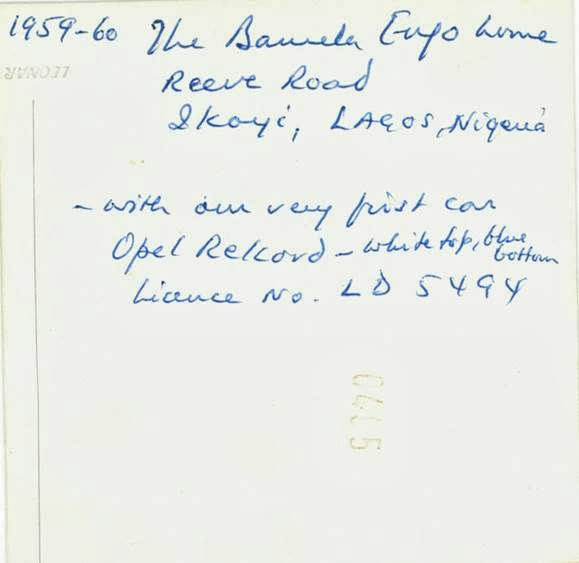 1959-60 The Bamela Engo home
LEONAR
Reeve Road
Ikoyi, LAGOS, Nigeria
- with our very first car
Opel Rekord - white top, blue
bottom
Licence No. LD 5494